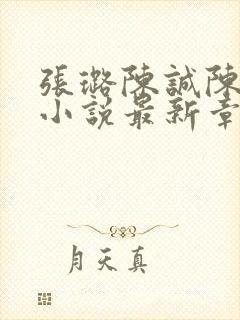 張璐陳誠陳
小說最新章
月天真